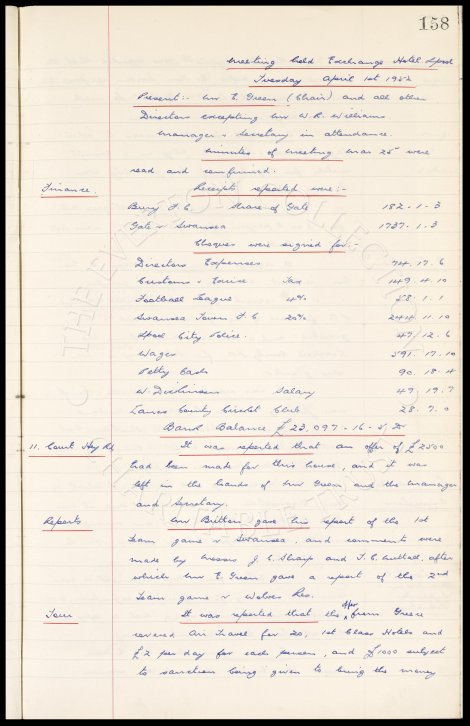 158
Meeting held Exchange Hotel Lpool
Tuesday April 1st 1952
Present:- Mr E. Green (Chair) and all other
Directors excepting Mr W. R. Williams
Manager & Secretary in attendance.
Minutes of meeting Mar 25 were
read and confirmed.
Finance. Receipts reported were:-
Bury F.C. Share of Gate 182-1-3
Gate v Swansea 1737.1.3
Cheques were signed for:-
Directors Expenses 74.17.6
Customs & Excise Tax 1149.4.10
Football League 4% 58.1.1
Swansea Town F.C. 20% 244.11.10
Lpool City Police. 47.12.6
Wages 591.17.10
Petty Cash 90.18.4
W. Dickinson Salary 49.19.7
Lancs County Cricket Club 28.7.0
Bank Balance £23,097-16-5 Dr
11. Court Hey Rd It was reported that an offer of £2500
had been made for this house, and it was
left in the hands of Mr Green, and the Manager
and Secretary.
Reports Mr Britton gave his report of the 1st
team game v Swansea, and comments were
made by Messrs J. C. Sharp and T. C. Nuttall, after
which Mr E. Green gave a report of the 2nd
team game v Wolves Res.
Tour It was reported that the offer from Greece
covered Air Travel for 20, 1st Class Hotels and
£2 per day for each person, and £1000 subject
to sanction being given to bring the money
THE EVERTON COLLECTION
CHARITABLE TRUST